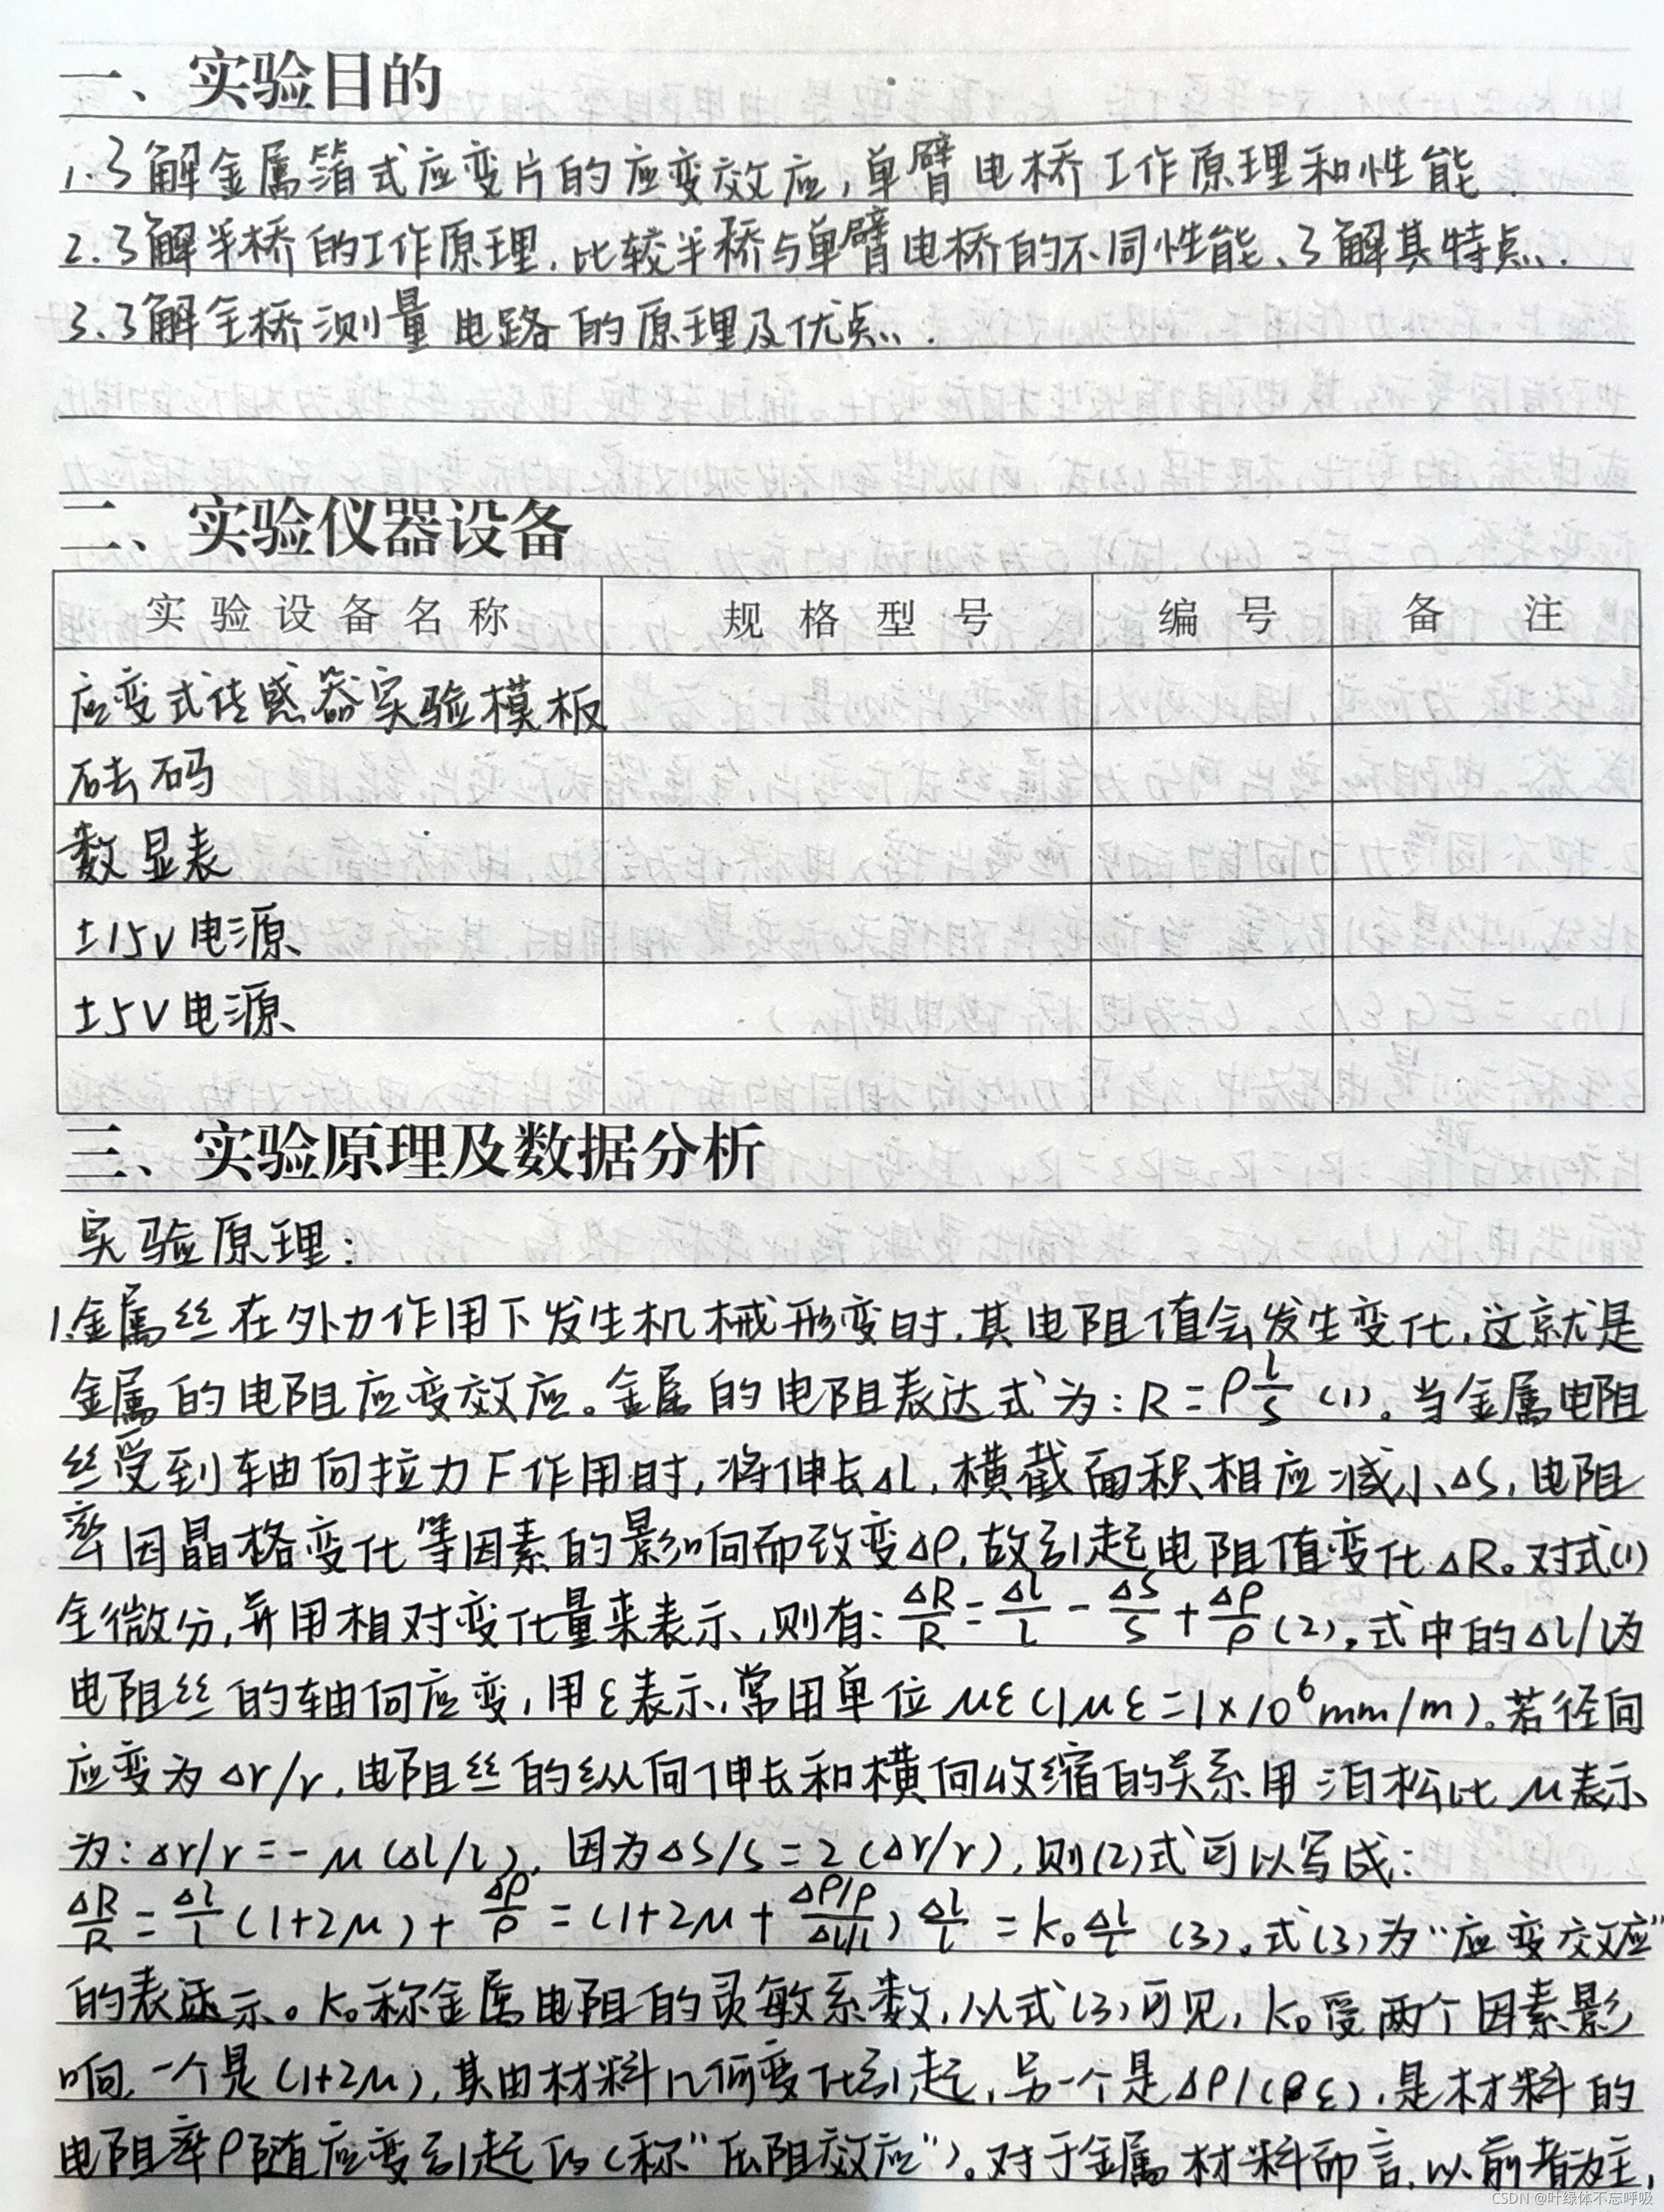 一、实验目的
1.了解金属箔式应变片的应变效应,单臂电桥工作原理和性能.
2.了解半桥的工作原理.比较半桥与单臂电桥的不同性能、了解其特点.
3.了解全桥测量电路的原理及优点.
二、实验仪器设备
实验设备名称 规格型号 编号 备注
应变式传感器实验模板
砝码
数显表
±15V电源
±5V电源
三、实验原理及数据分析
实验原理:
1.金属丝在外力作用下发生机械形变时,其电阻值会发生变化,这就是
金属的电阻应变效应。金属的电阻表达式为:R=ρl/S (1)。当金属电阻
丝受到轴向拉力F作用时,将伸长Δl,横截面积相应减小ΔS,电阻
率因晶格变化等因素的影响而改变Δρ,故引起电阻值变化ΔR。对式(1)
全微分,并用相对变化量来表示,则有:ΔR/R=Δl/l-ΔS/S+Δρ/ρ(2)。式中的Δl/l为
电阻丝的轴向应变,用ε表示,常用单位με(1με=1×10⁶mm/m)。若径向
应变为Δr/r,电阻丝的纵向伸长和横向收缩的关系用泊松比μ表示
为:Δr/r=-μ(Δl/l),因为ΔS/S=2(Δr/r),则(2)式可以写成:
ΔR/R=Δl/l(1+2μ)+Δρ/ρ=(1+2μ+(Δρ/ρ)/(Δl/l))Δl/l=k₀Δl/l (3)。式(3)为“应变效应”
的表达示。k₀称金属电阻的灵敏系数,从式(3)可见,k₀受两个因素影
响,一个是(1+2μ),其由材料几何变化引起,另一个是Δρ/(ρε),是材料的
电阻率ρ随应变引起的(称“压阻效应”)。对于金属材料而言,以前者为主,
CSDN @叶绿体不忘呼吸